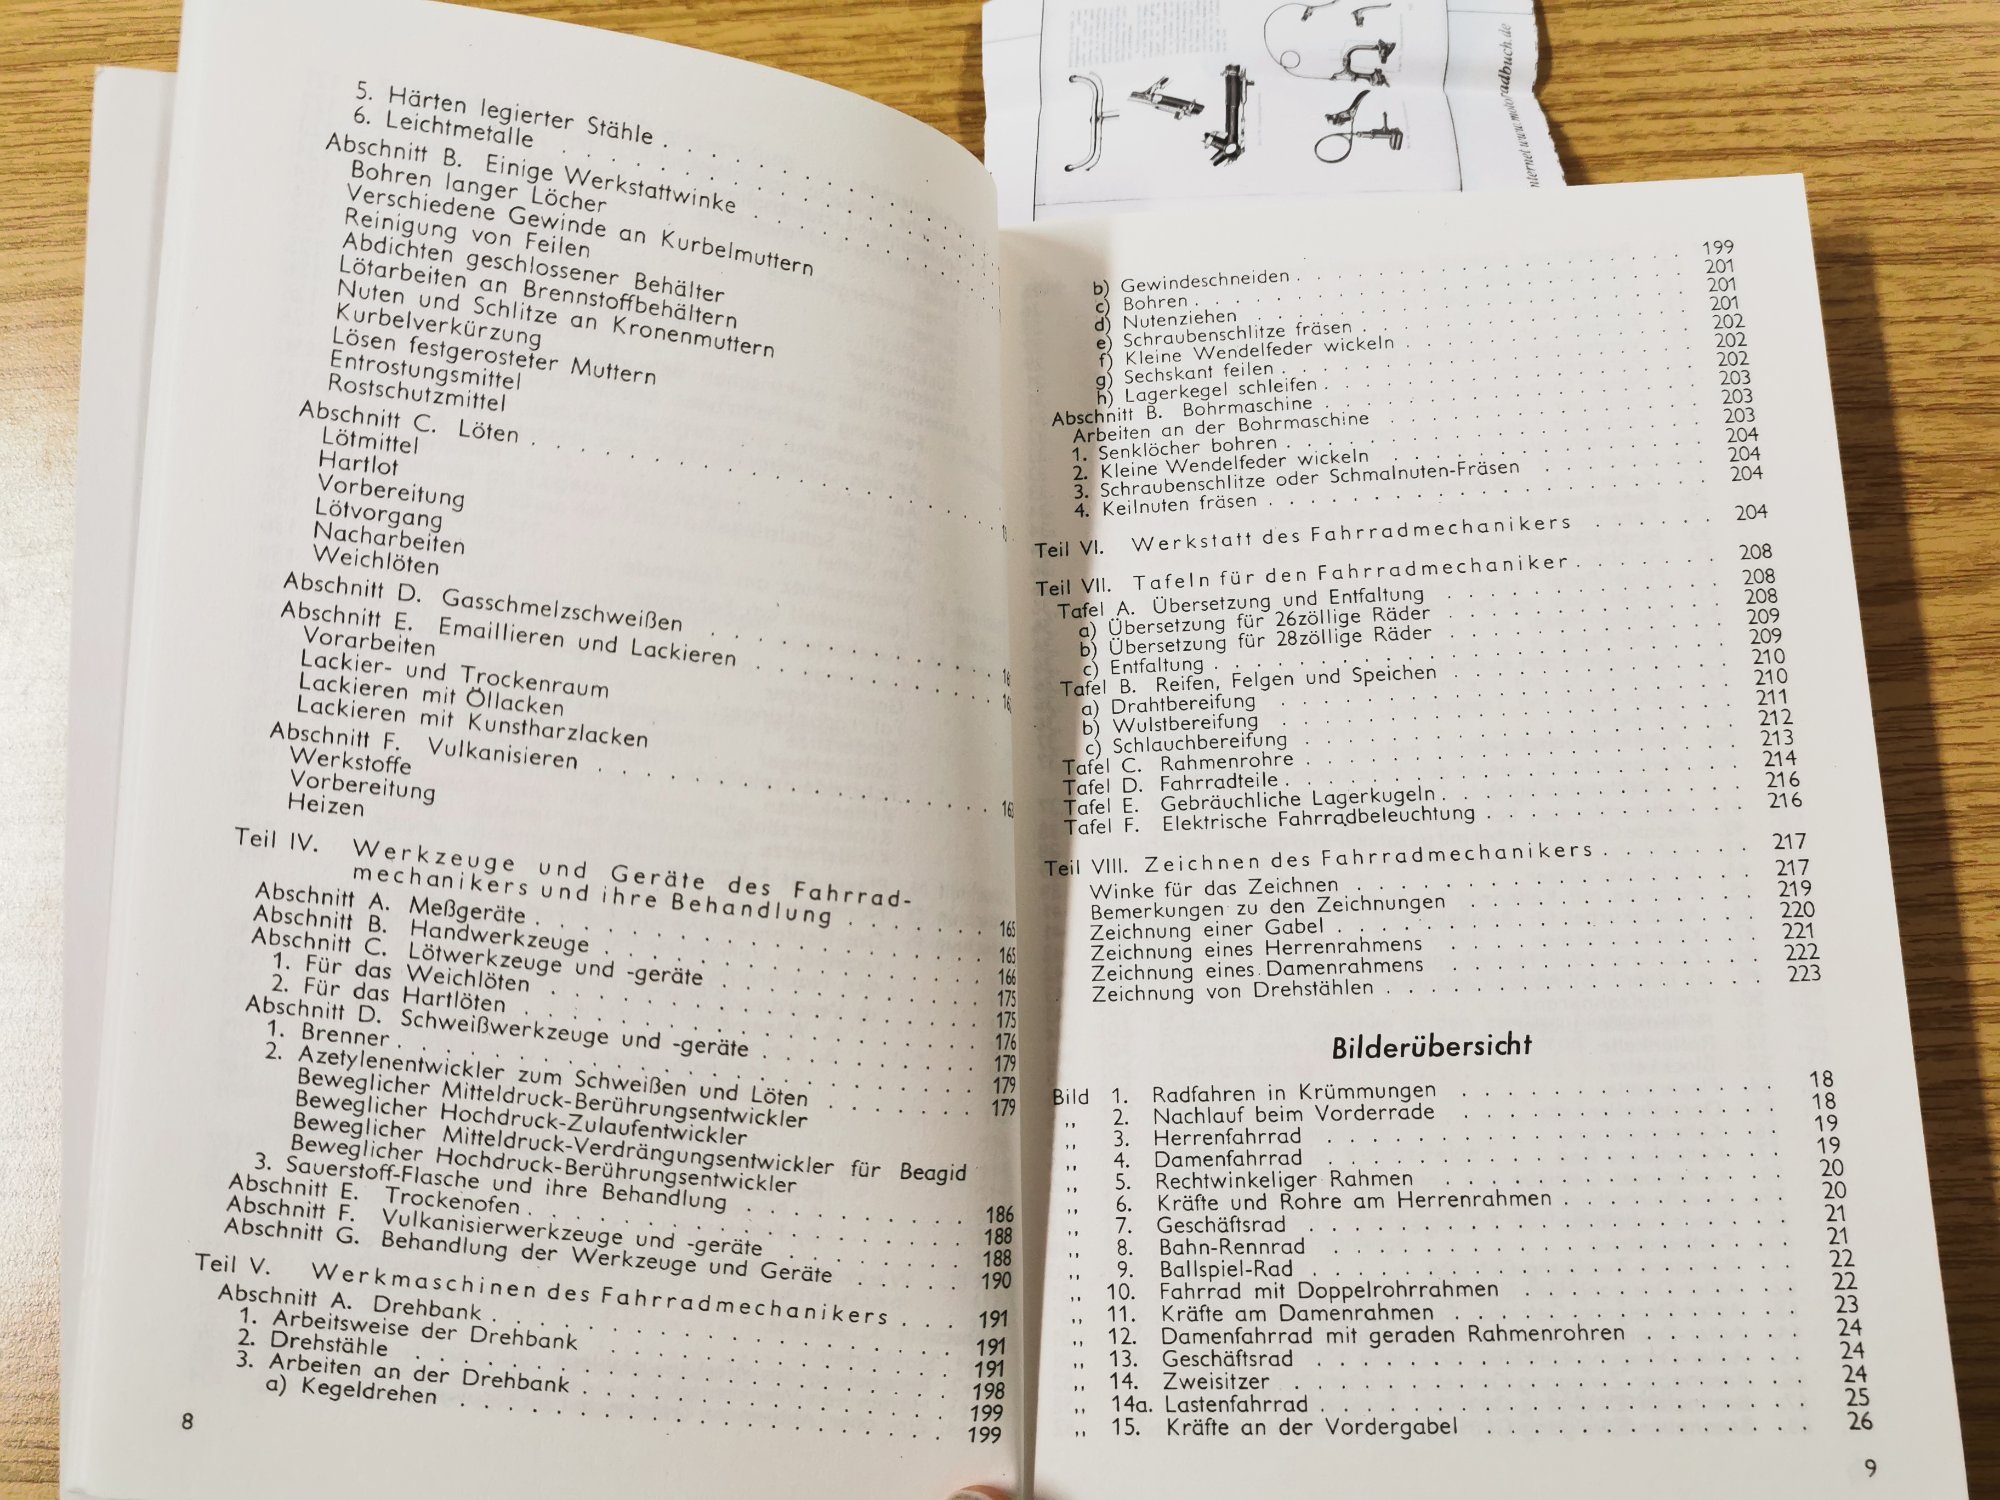 5. Härten legierter Stähle . . . . .
6. Leichtmetalle . . . . .
Abschnitt B. Einige Werkstattwinke . . . . .
Bohren langer Löcher
Verschiedene Gewinde an Kurbelmuttern
Reinigung von Feilen
Abdichten geschlossener Behälter
Lötarbeiten an Brennstoffbehältern
Nuten und Schlitze an Kronenmuttern
Kurbelverkürzung
Lösen festgerosteter Muttern
Entrostungsmittel
Rostschutzmittel
Abschnitt C. Löten . . . . .
Lötmittel
Hartlot
Vorbereitung
Lötvorgang
Nacharbeiten
Weichlöten
Abschnitt D. Gasschmelzschweißen . . . . .
Abschnitt E. Emaillieren und Lackieren . . . . .
Vorarbeiten
Lackier- und Trockenraum
Lackieren mit Öllacken
Lackieren mit Kunstharzlacken
Abschnitt F. Vulkanisieren . . . . . 163
Werkstoffe
Vorbereitung
Heizen
Teil IV. Werkzeuge und Geräte des Fahrrad-
mechanikers und ihre Behandlung . . . . . 165
Abschnitt A. Meßgeräte . . . . . 165
Abschnitt B. Handwerkzeuge . . . . . 166
Abschnitt C. Lötwerkzeuge und -geräte . . . . . 175
1. Für das Weichlöten . . . . . 175
2. Für das Hartlöten . . . . . 176
Abschnitt D. Schweißwerkzeuge und -geräte . . . . . 179
1. Brenner . . . . . 179
2. Azetylenentwickler zum Schweißen und Löten . . . . . 179
Beweglicher Mitteldruck-Berührungsentwickler
Beweglicher Hochdruck-Zulaufentwickler
Beweglicher Mitteldruck-Verdrängungsentwickler für Beagid
Beweglicher Hochdruck-Berührungsentwickler
3. Sauerstoff-Flasche und ihre Behandlung . . . . . 186
Abschnitt E. Trockenofen . . . . . 188
Abschnitt F. Vulkanisierwerkzeuge und -geräte . . . . . 188
Abschnitt G. Behandlung der Werkzeuge und Geräte . . . . . 190
Teil V. Werkmaschinen des Fahrradmechanikers . . . 191
Abschnitt A. Drehbank . . . . . 191
1. Arbeitsweise der Drehbank . . . . . 191
2. Drehstähle . . . . . 198
3. Arbeiten an der Drehbank . . . . . 199
a) Kegeldrehen . . . . . 199
8
nternet www.motoradbuch.de
b) Gewindeschneiden . . . . . 199
c) Bohren . . . . . 201
d) Nutenziehen . . . . . 201
e) Schraubenschlitze fräsen . . . . . 201
f) Kleine Wendelfeder wickeln . . . . . 202
g) Sechskant feilen . . . . . 202
h) Lagerkegel schleifen . . . . . 202
Abschnitt B. Bohrmaschine . . . . . 203
Arbeiten an der Bohrmaschine . . . . . 203
1. Senklöcher bohren . . . . . 203
2. Kleine Wendelfeder wickeln . . . . . 204
3. Schraubenschlitze oder Schmalnuten-Fräsen . . . . . 204
4. Keilnuten fräsen . . . . . 204
Teil VI. Werkstatt des Fahrradmechanikers . . . . . 204
Teil VII. Tafeln für den Fahrradmechaniker . . . . . 208
Tafel A. Übersetzung und Entfaltung . . . . . 208
a) Übersetzung für 26zöllige Räder . . . . . 208
b) Übersetzung für 28zöllige Räder . . . . . 209
c) Entfaltung . . . . . 209
Tafel B. Reifen, Felgen und Speichen . . . . . 210
a) Drahtbereifung . . . . . 210
b) Wulstbereifung . . . . . 211
c) Schlauchbereifung . . . . . 212
Tafel C. Rahmenrohre . . . . . 213
Tafel D. Fahrradteile . . . . . 214
Tafel E. Gebräuchliche Lagerkugeln . . . . . 216
Tafel F. Elektrische Fahrradbeleuchtung . . . . . 216
Teil VIII. Zeichnen des Fahrradmechanikers . . . . . 217
Winke für das Zeichnen . . . . . 217
Bemerkungen zu den Zeichnungen . . . . . 219
Zeichnung einer Gabel . . . . . 220
Zeichnung eines Herrenrahmens . . . . . 221
Zeichnung eines Damenrahmens . . . . . 222
Zeichnung von Drehstählen . . . . . 223
Bilderübersicht
Bild 1. Radfahren in Krümmungen . . . . . 18
,, 2. Nachlauf beim Vorderrade . . . . . 18
,, 3. Herrenfahrrad . . . . . 19
,, 4. Damenfahrrad . . . . . 19
,, 5. Rechtwinkeliger Rahmen . . . . . 20
,, 6. Kräfte und Rohre am Herrenrahmen . . . . . 20
,, 7. Geschäftsrad . . . . . 21
,, 8. Bahn-Rennrad . . . . . 21
,, 9. Ballspiel-Rad . . . . . 22
,, 10. Fahrrad mit Doppelrohrrahmen . . . . . 22
,, 11. Kräfte am Damenrahmen . . . . . 23
,, 12. Damenfahrrad mit geraden Rahmenrohren . . . . . 24
,, 13. Geschäftsrad . . . . . 24
,, 14. Zweisitzer . . . . . 24
,, 14a. Lastenfahrrad . . . . . 25
,, 15. Kräfte an der Vordergabel . . . . . 26
9